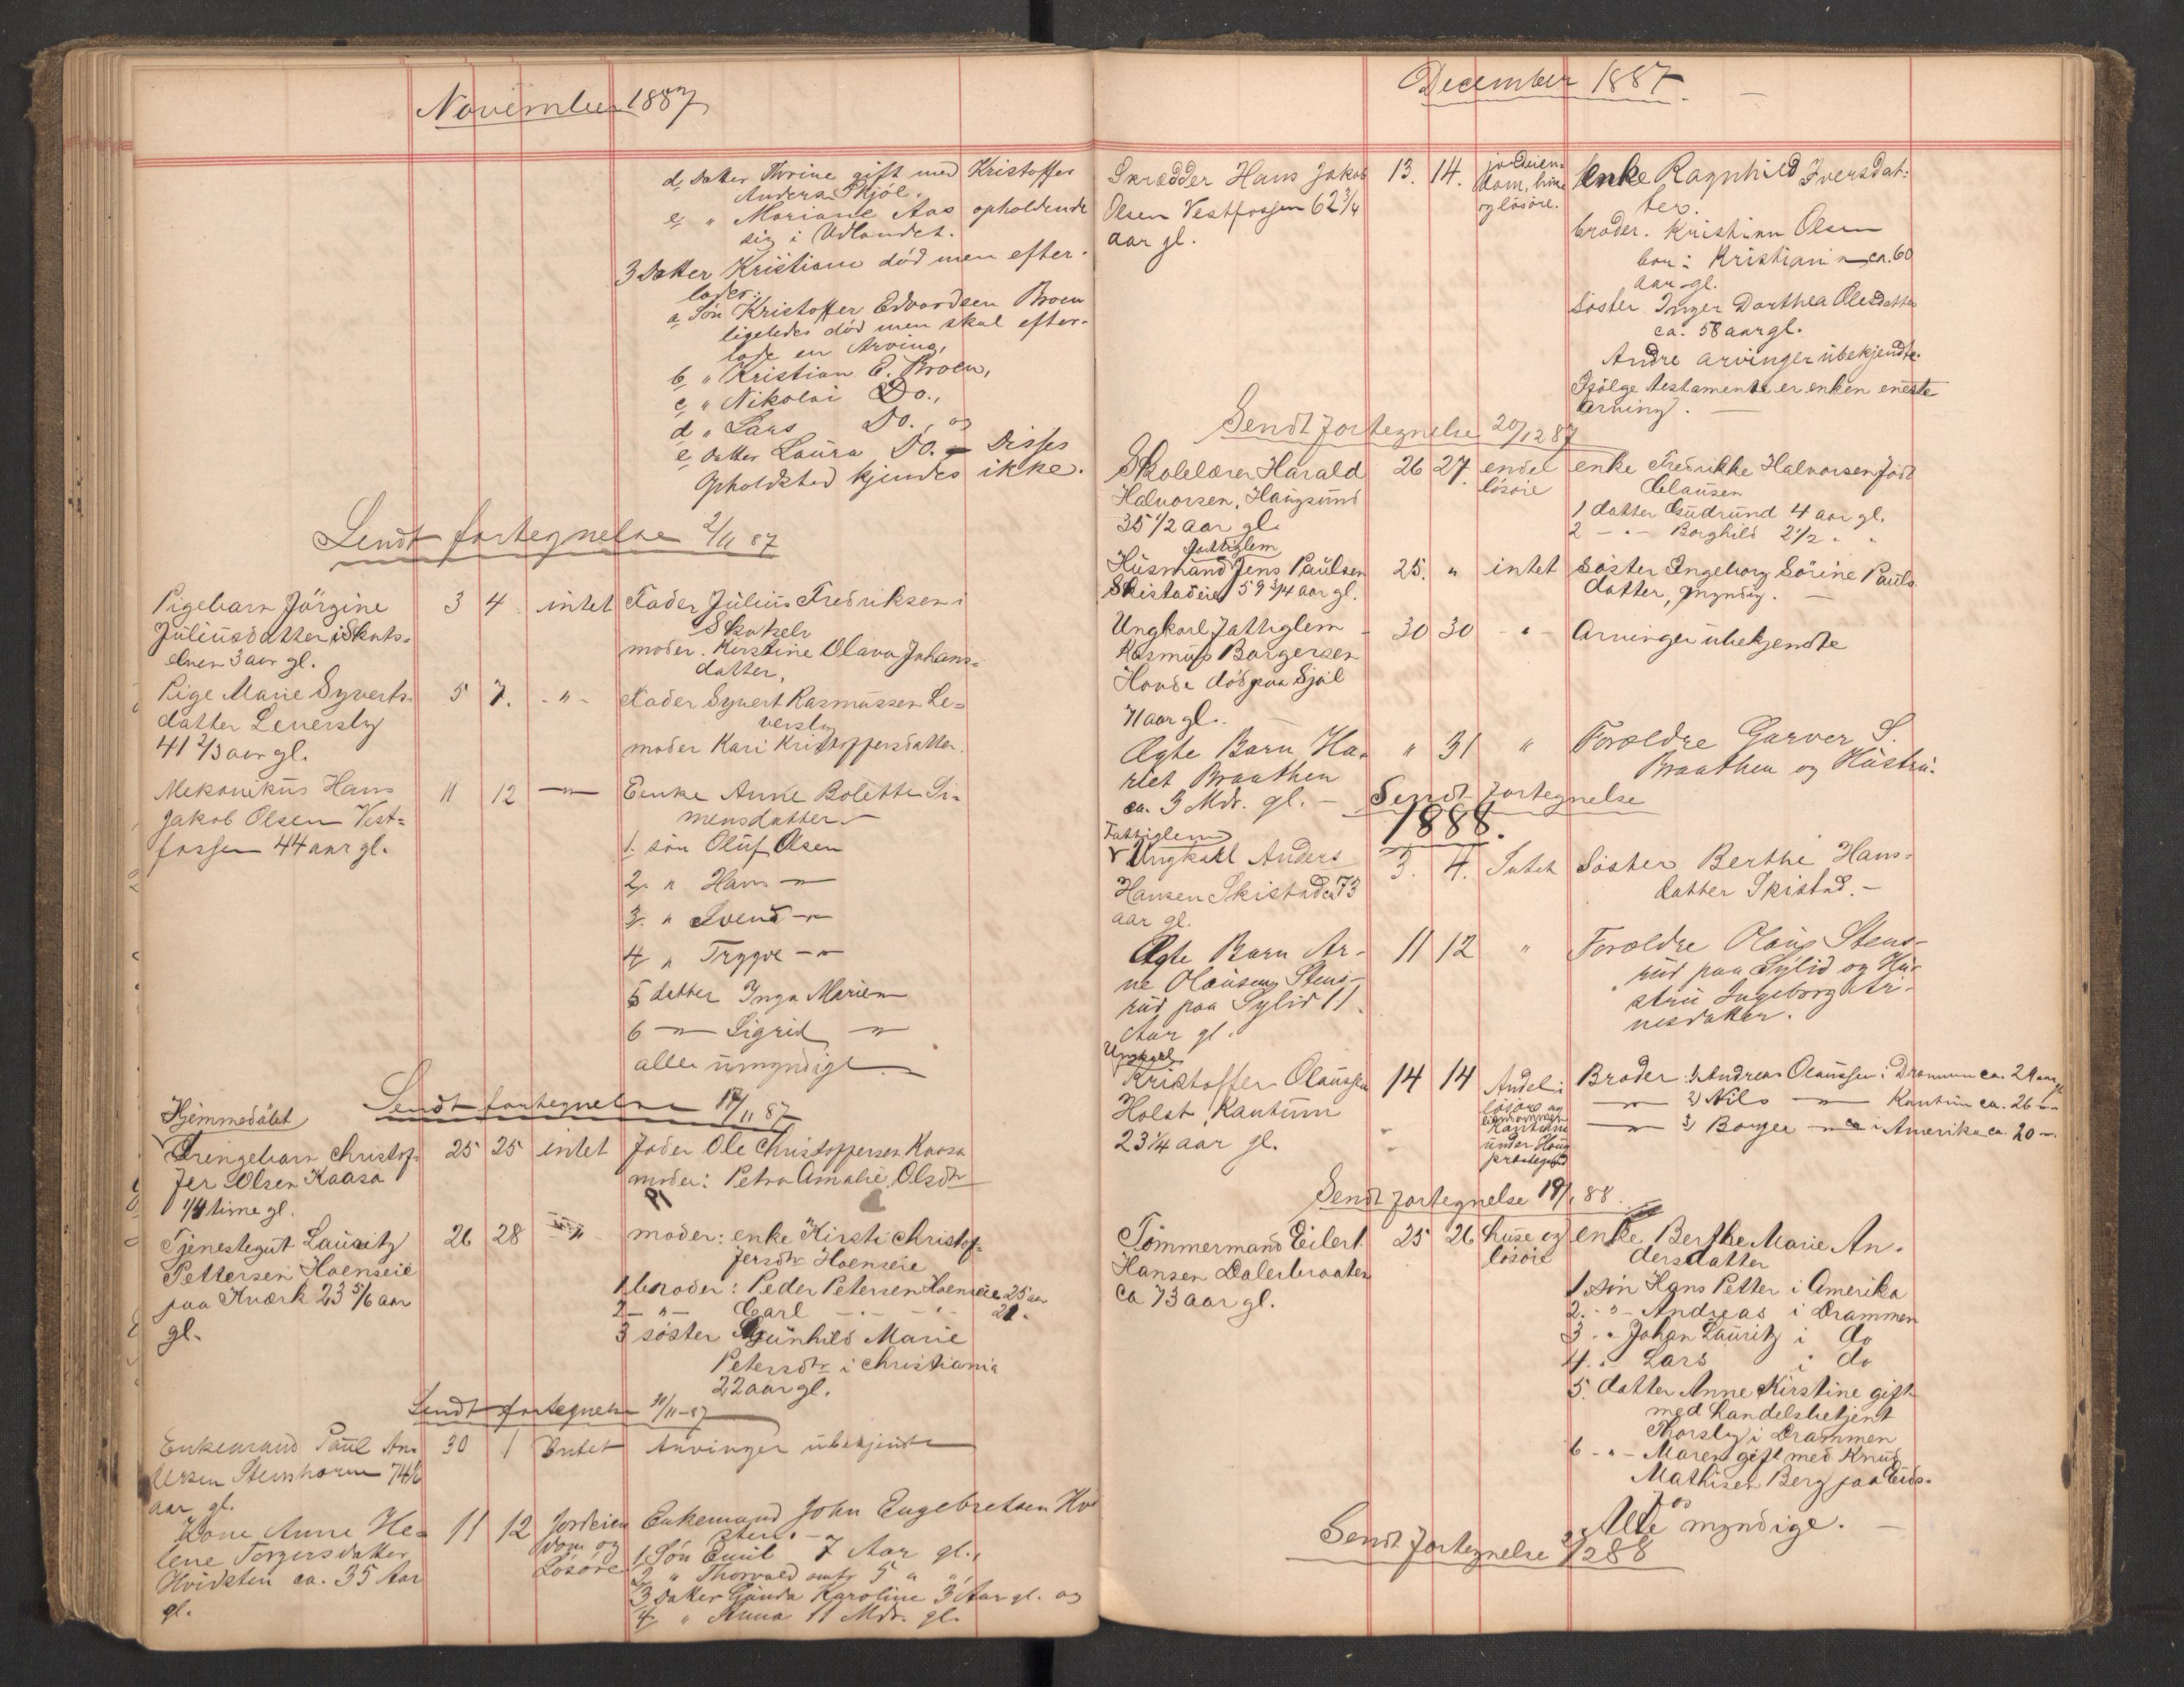 November 1887
d, Datter Thrine gift med Kristoffer
Anders. Skjöl.
e, " Mariane Aas opholdende
sig i Udlandet.
3 Datter Kristiane död men efter-
lader:
a Sön Kristoffer Edvardsen Broen
ligeledes död men skal efter-
lade en Arving,
b, " Kristian E. Broen,
c, " Nikolai Do.,
d " Lars Do., og
e, datter Laura Do. - Disses
Opholdsted kjendes ikke.
Sendt fortegnelse 2/11 87
Pigebarn Jörgine 3 4 intet Fader Julius Fredriksen i
Juliusdatter i Skots- Skotselv
elven 3 aar gl. moder. Kirstine Olava Johans-
datter,
Pige Marie Syverts- 5 7. - " - Fader Syvert Rasmussen Le-
datter Leversby versby
41 2/3 aar gl. moder Kari Kristoffersdatter.
Mekanikus Hans 11 12 — " — Eenke Anne Bolette Si-
Jakob Olsen Vest- mensdatter
fossen 44 aar gl. 1. sön Oluf Olsen
2. " Hans — " —
3. " Svend — " —
4 " Trygve — " —
5 datter Inga Marie — " —
6 — " — Sigrid — " —
alle umyndige
Sendt fortegnelse 17/11 87
Hjemmedöbt
Drengebarn Christof- 25 25 intet fader Ole Christoffersen Kaasa
fer Olsen Kaasa moder: Petra Amalie Olsdtr
1/4 time gl.
Tjenestegut Lauritz 26 28 - " - moder: enke Kirsti Christof-
Pettersen Hoenseie fersdtr Hoenseie
paa Kværk 23 5/6 aar 1 broder: Peder Petersen Hoenseie 25 aar
gl. 2 - " - Carl - " - - " - 21.
3 söster Gunhild Marie
Petersdtr i Christiania
22 aar gl.
Sendt fortegnelse 30/11-87
Enkemand Paul An- 30 1 Intet Arvinger ubekjendte
dersen Stenshorn 74 1/2
aar gl.
Kone Anne He- 11 12 Jordeien Enkemand John Engebretsen Hvid
lene Torgersdatter dom og sten. -
Hvidsten ca. 35 Aar Lösöre 1 Sön Emil 7 Aar gl.,
gl. 2 " Thorvald omtr 5 " "
3 Datter Gunda Karoline 3 Aar gl. og
4 " Anna 11 Mdr. gl.
December 1887
Skrædder Hans Jakob 13. 14. jordeien- Enke Ragnhild Iversdat-
Olsen Vestfossen 62 3/4 dom, huse ter.
aar gl. og lösöre. broder. Kristian Olsen
bor i Kristiania ca. 60
aar gl.
Söster Inger Dorthea Olesdatter
ca. 58 aar gl.
Andre arvinger ubekjendte.
Ifölge testamente er enken eneste
arving.
Sendt fortegnelse 20/12 87
Skolelærer Harald 26 27. endel enke Fredrikke Halvorsen födt
Halvorsen, Haugsund lösöre Clausen
35 1/2 aar gl. 1 datter Gudrund 4 aar gl.
2 - " - Borghild 2 1/2 " "
fattiglem
Husmand Jens Paulsen 25. " intet Söster Ingeborg Sörine Pauls-
Skistadeie 59 3/4 aar gl. datter, myndig.
Ungkarl fattiglem 30 30 - " - Arvinger ubekjendte
Rasmus Borgersen
Hovde död paa Sjöl
71 aar gl.
Ægte Barn Ha- " 31 " Forældre Garver S.
riet Braathen Braathen og Hustru.
ca. 3 Mdr. gl. - Sendt fortegnelse
1888.
Fattiglem
Ungkarl Anders 3. 4. Intet Söster Berthe Hans-
Hansen Skistad ca 73 datter Skistad. -
aar gl.
Ægte Barn Ar- 11 12 " Forældre Olaus Stens-
ne Olausen Stens- rud paa Sylid og Hu-
rud paa Sylid 11 stru Ingeborg Ar-
Aar gl. nesdatter.
Ungkarl
Kristoffer Olaussen 14 14 Andel i Broder: 1) Andreas Olaussen i Drammen ca. 24 aar gl
Holst, Kantum lösöre og — " — 2) Nils — " — Kantum ca. 26 — " —
23 1/4 aar gl. eiendommen Kantum — " — 3) Borger — " — i Amerika ca. 20 — " —
under Haug
præstegjeld
Sendt fortegnelse 19/1 88.
Tömmermand Eilert 25 26 huse og enke Berthe Marie An-
Hansen Dalerbraaten lösöre dersdatter
ca 73 aar gl. 1 sön Hans Petter i Amerika
2. - " - Andreas i Drammen
3 - " Johan Lauritz i do
4. " - Lars i do
5. datter Anne Kirstine gift
med handelsbetjent
Thorsby i Drammen
6 - " - Maren gift med Knud
Mathisen Berg paa Eids-
fos
Alle myndige.
Sendt fortegnelse 2/2 88